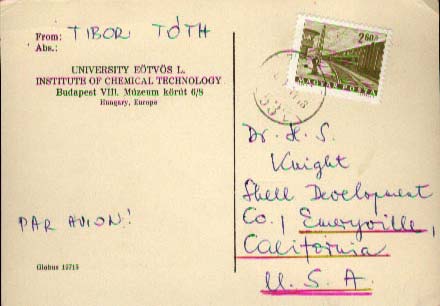 From: TIBOR TÓTH
Abs.:
UNIVERSITY EÖTVÖS L.
INSTITUTE OF CHEMICAL TECHNOLOGY
Budapest VIII. Múzeum körút 6/8
Hungary, Europe
2.60
MAGYAR POSTA
Dr. H. S.
Knight
Shell Development
Co., Emeryville,
California
U. S. A.
PAR AVION!
Globus 19715